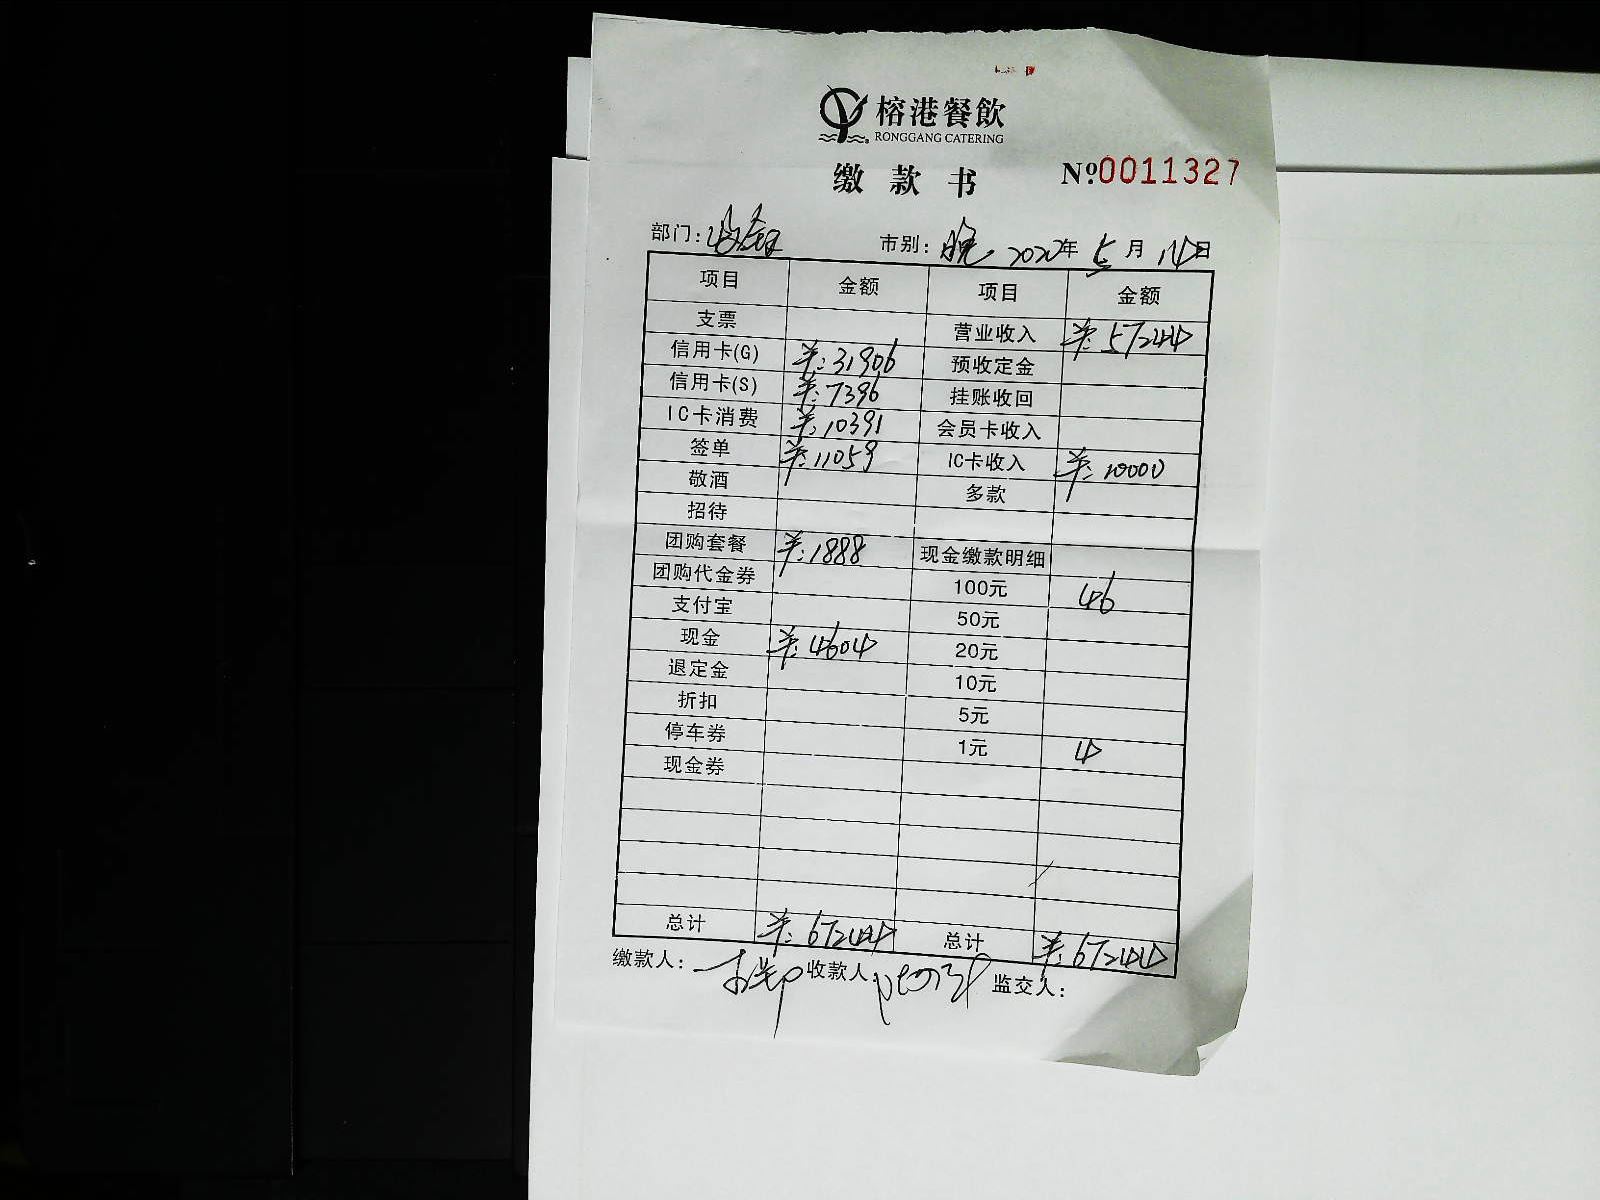 榕港餐飲
RONGGANG CATERING
缴款书 №0011327
部门: 收银 市别: 晚 2020年 5月 14日
项目 金额 项目 金额
支票 营业收入 ¥:57244
信用卡(G) ¥:31906 预收定金
信用卡(S) ¥:7396 挂账收回
IC卡消费 ¥:10391 会员卡收入
签单 ¥:11059 IC卡收入 ¥:10000
敬酒 多款
招待
团购套餐 ¥:1888 现金缴款明细
团购代金券 100元 46
支付宝 50元
现金 ¥:4604 20元
退定金 10元
折扣 5元
停车券 1元 4
现金券
总计 ¥:67244 总计 ¥:67244
缴款人: 收款人: 监交人: